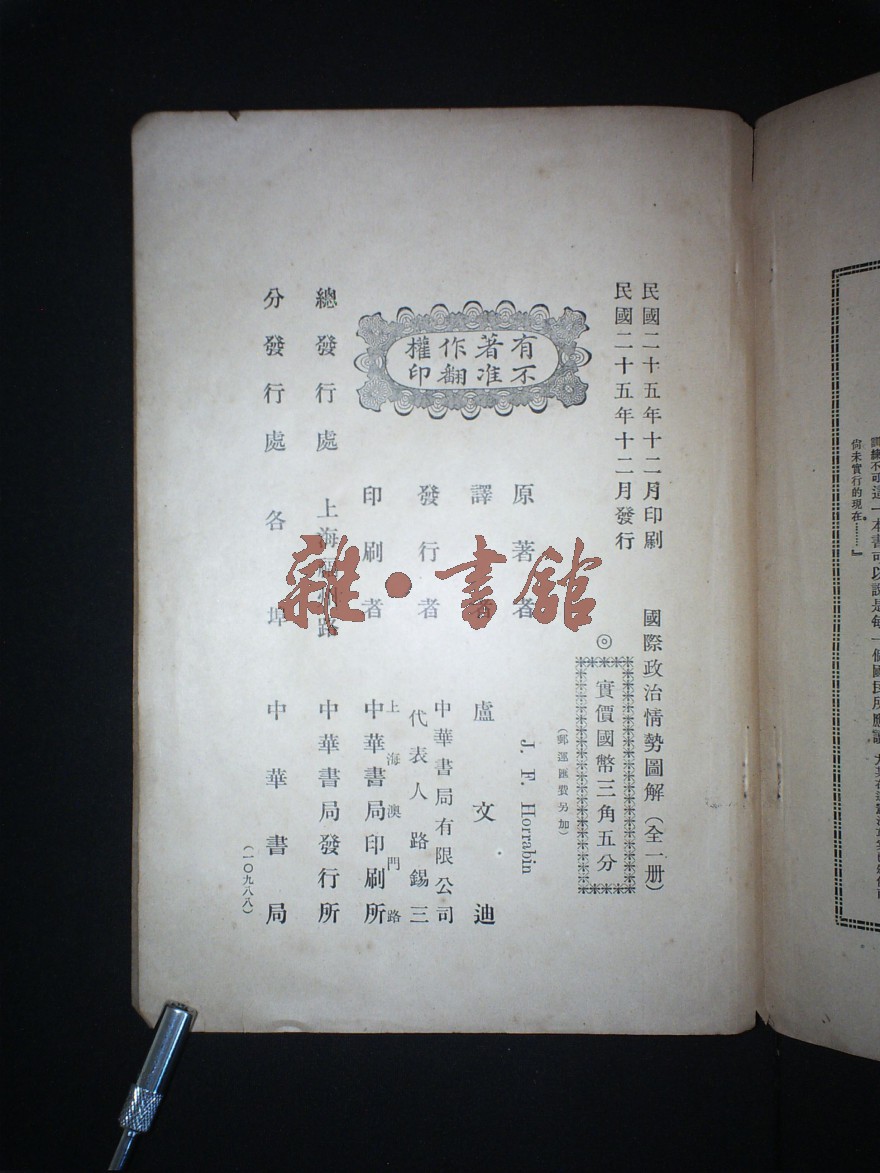 民國二十五年十二月印刷
民國二十五年十二月發行
國際政治情勢圖解（全一册）
◎實價國幣三角五分
（郵運匯費另加）
有著作權
不准翻印
原著者 J. F. Horrabin
譯者 盧文迪
發行者 中華書局有限公司
代表人路錫三
印刷者 上海澳門路
中華書局印刷所
總發行處 上海福州路 中華書局發行所
分發行處 各埠 中華書局
（一〇九八八）
雜·書館
尙未實行的現在………』